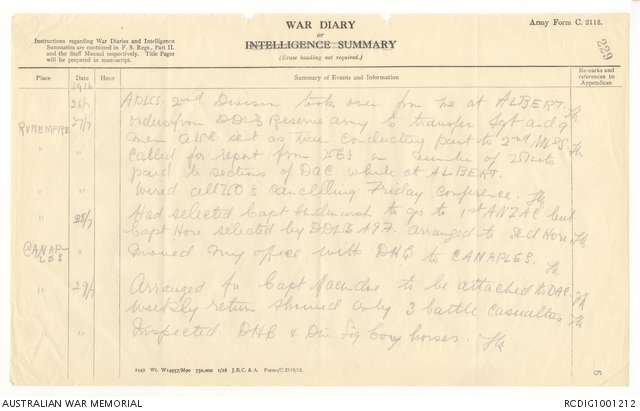 WAR DIARY
or
INTELLIGENCE SUMMARY
(Erase heading not required.)
Army Form C. 2118.
Instructions regarding War Diaries and Intelligence
Summaries are contained in F. S. Regs., Part II.
and the Staff Manual respectively. Title Pages
will be prepared in manuscript.
229
Place Date Summary of Events and Information Remarks and
references to
Appendices
1916
26/7 ADVS 2nd Division took over from me at ALBERT.
RUBEMPRE 27/7 orders from DDVS Reserve army to transfer Sgt and 9
men sent as conducting party to 2nd
" Called for report from VOs on number of
" paid to sections of DAC while at ALBERT.
" Wired all VOs cancelling Friday conference.
" 28/7 Had selected Capt to go to 1st ANZAC but
" Capt Hore selected by DDVS arranged to send Hore
CANAPLES " moved my office with DHQ to CANAPLES.
" 29/7 Arranged for Capt to be attached to DAC.
" " weekly return showed only 3 battle casualties
" " Inspected DHQ & Div Sig Coy horses.
5
2149 Wt. W14957/M90 750,000 1/16 J.B.C. & A. Forms/C.2118/12.
AUSTRALIAN WAR MEMORIAL
RCDIG1001212